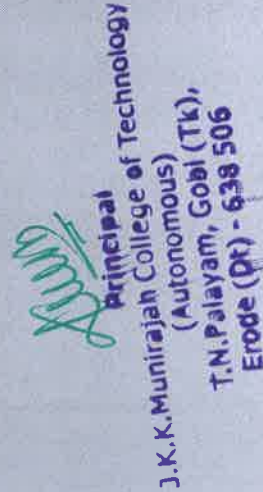 Principal
J.K.K.Munirajah College of Technology
(Autonomous)
T.N.Palayam, Gobi (Tk),
Erode (Dt) - 638 506